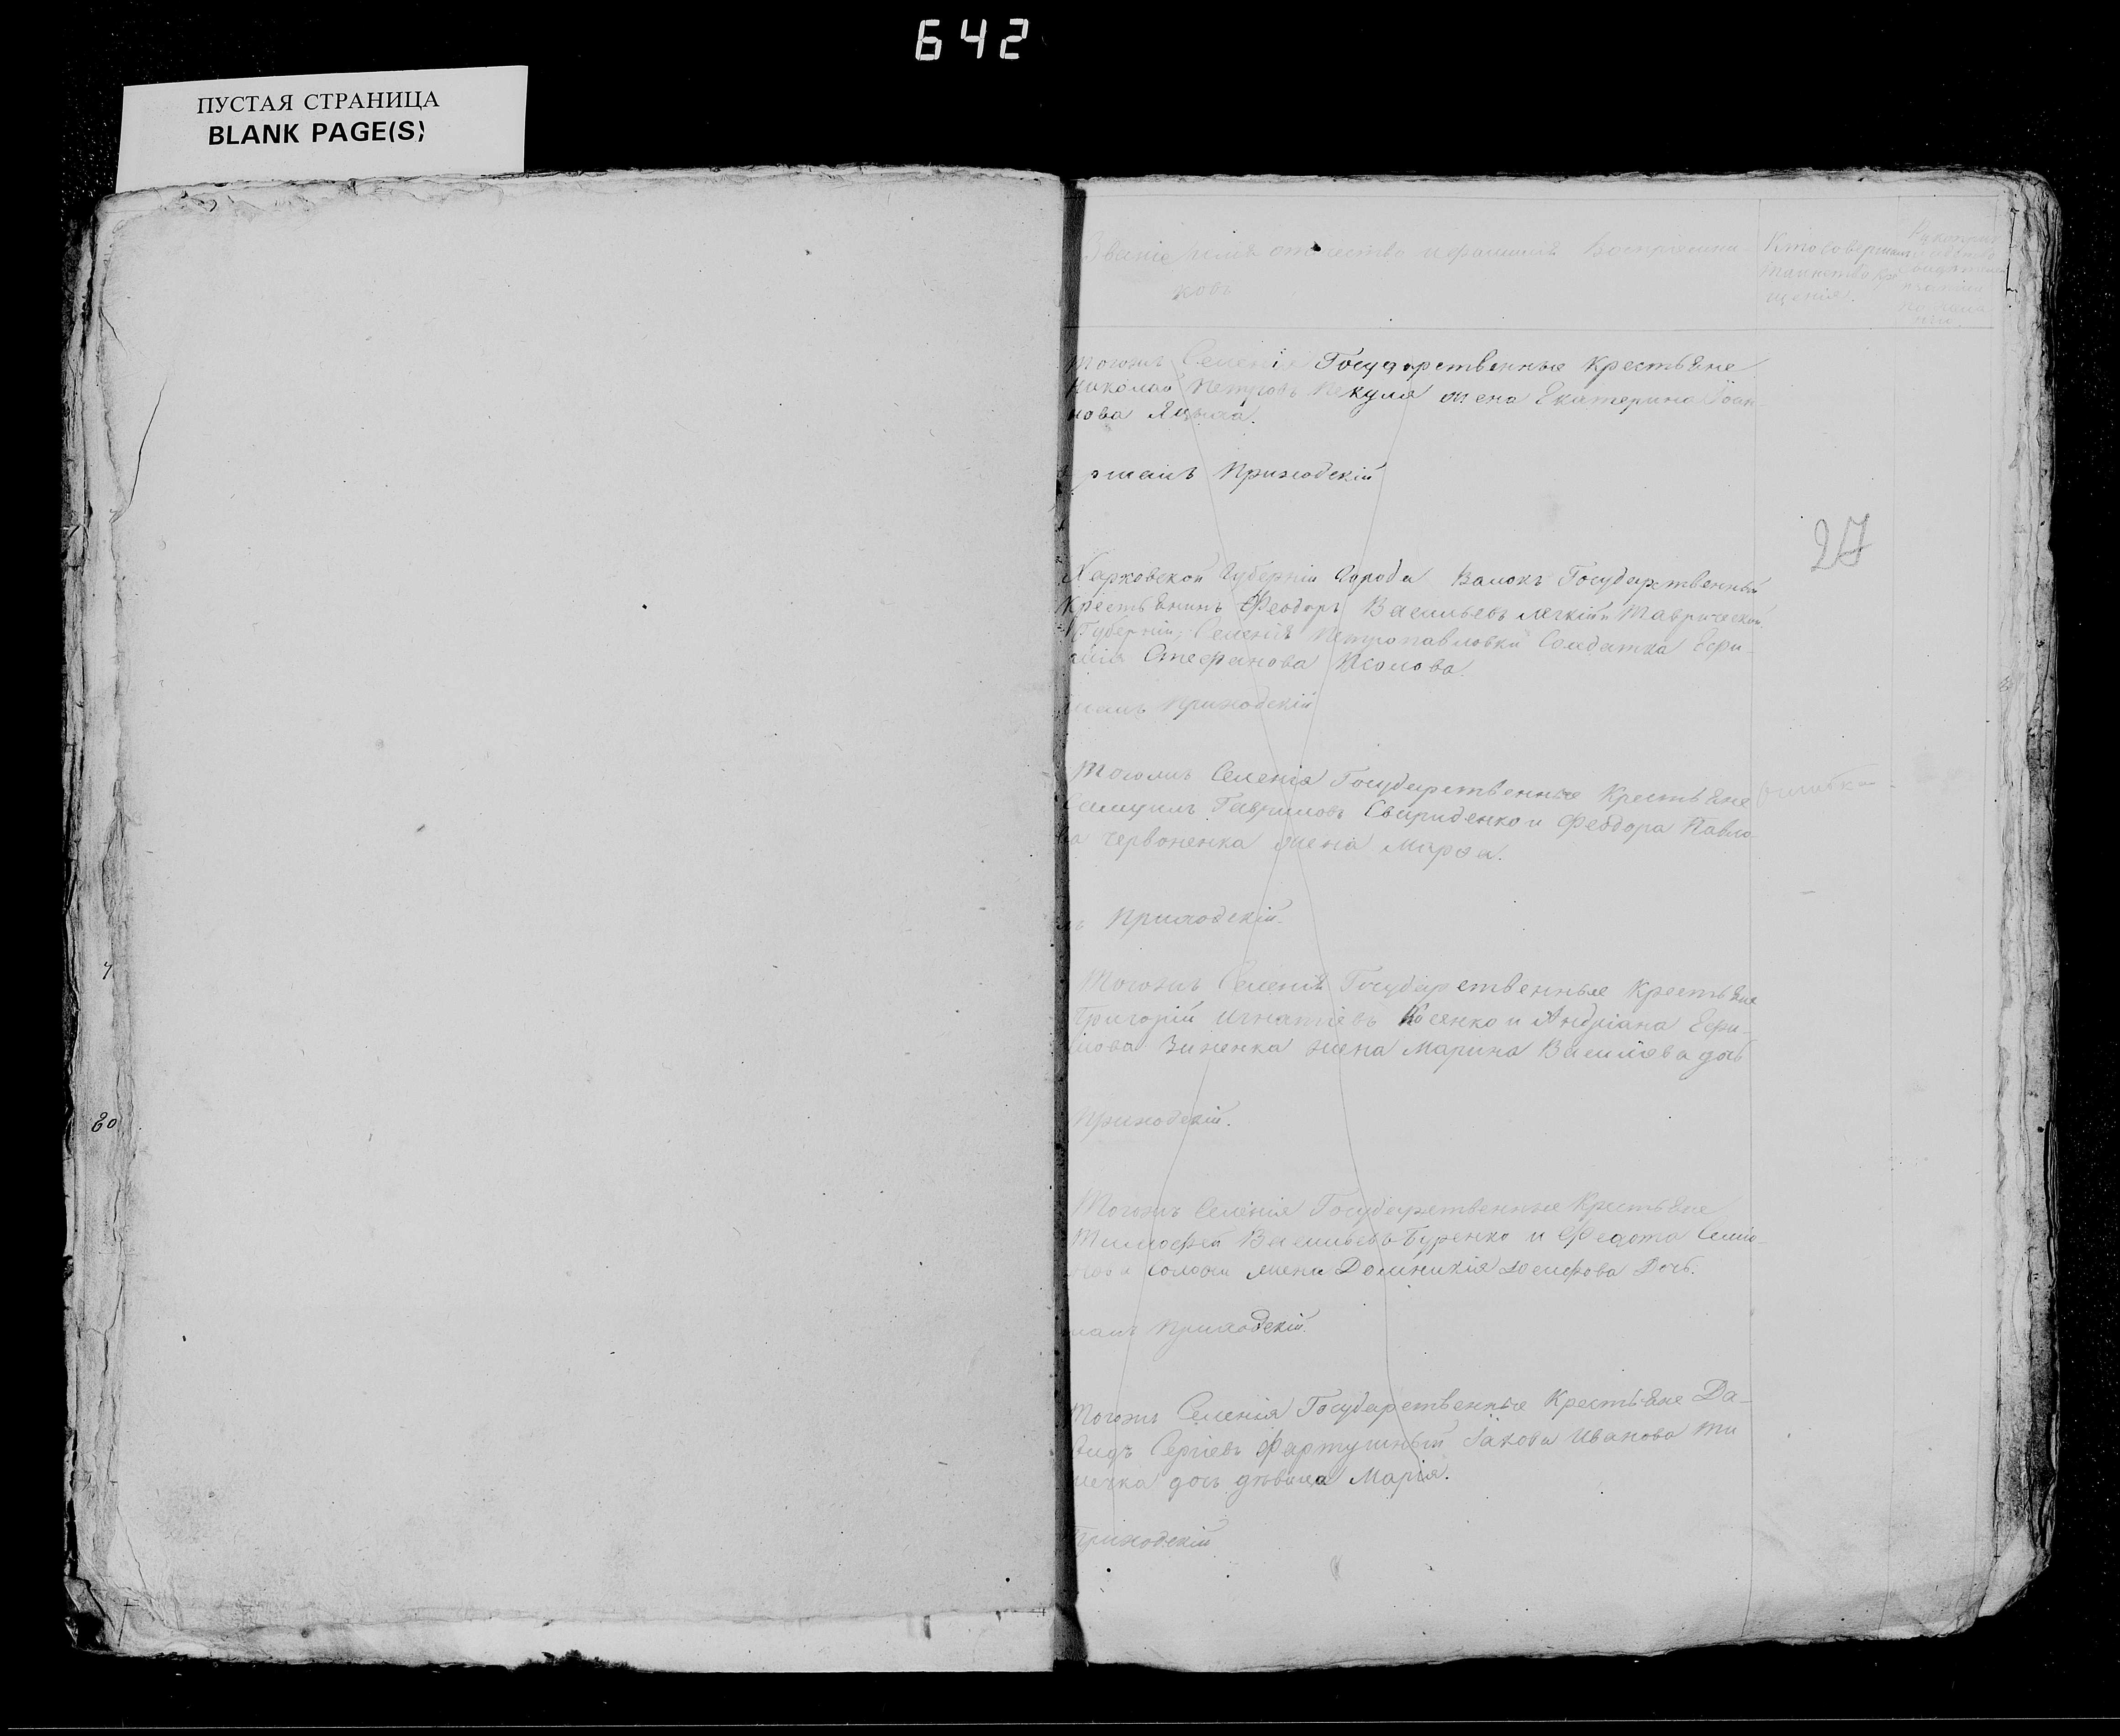 642
ПУСТАЯ СТРАНИЦА
BLANK PAGE(S)
Званіе имя отчество и фамилія Воспріемни
ковъ
Кто совершалъ
таинство Кре
щенія.
Тогожъ Селенія Государственные Крестьяне
Николай Петровъ Пекуля жена Екатерина Іоан-
нова
Приходскій
27
Харковской Губерніи Города Валокъ Государственный
Крестьянинъ Феодоръ Васильевъ Легкій и Таврической
Губерніи, Селенія Петропавловки Солдатка Ефи-
мія Стефанова
Приходскій
Тогожъ Селенія Государственные Крестьяне
Самуилъ Гавриловъ Свириденко и Феодора Павло-
ва Червоненка жена Марфа.
ошибка
Приходскій.
Тогожъ Селенія Государственные Крестьяне
Григорій Игнатіевъ Косенко и Андріана Ефи-
мова Зиненка жена Марина Василіева дочь
Приходскій.
Тогожъ Селенія Государственные Крестьяне
Тимофей Васильевъ Буренко и Федота Семіо-
нова жена Домникія Іосифова Дочь.
Приходскій.
Тогожъ Селенія Государственные Крестьяне Да-
видъ Сергіевъ Фартушный Іакова Иванова Ти
дочь дѣвица Марія.
Приходскій
7
80